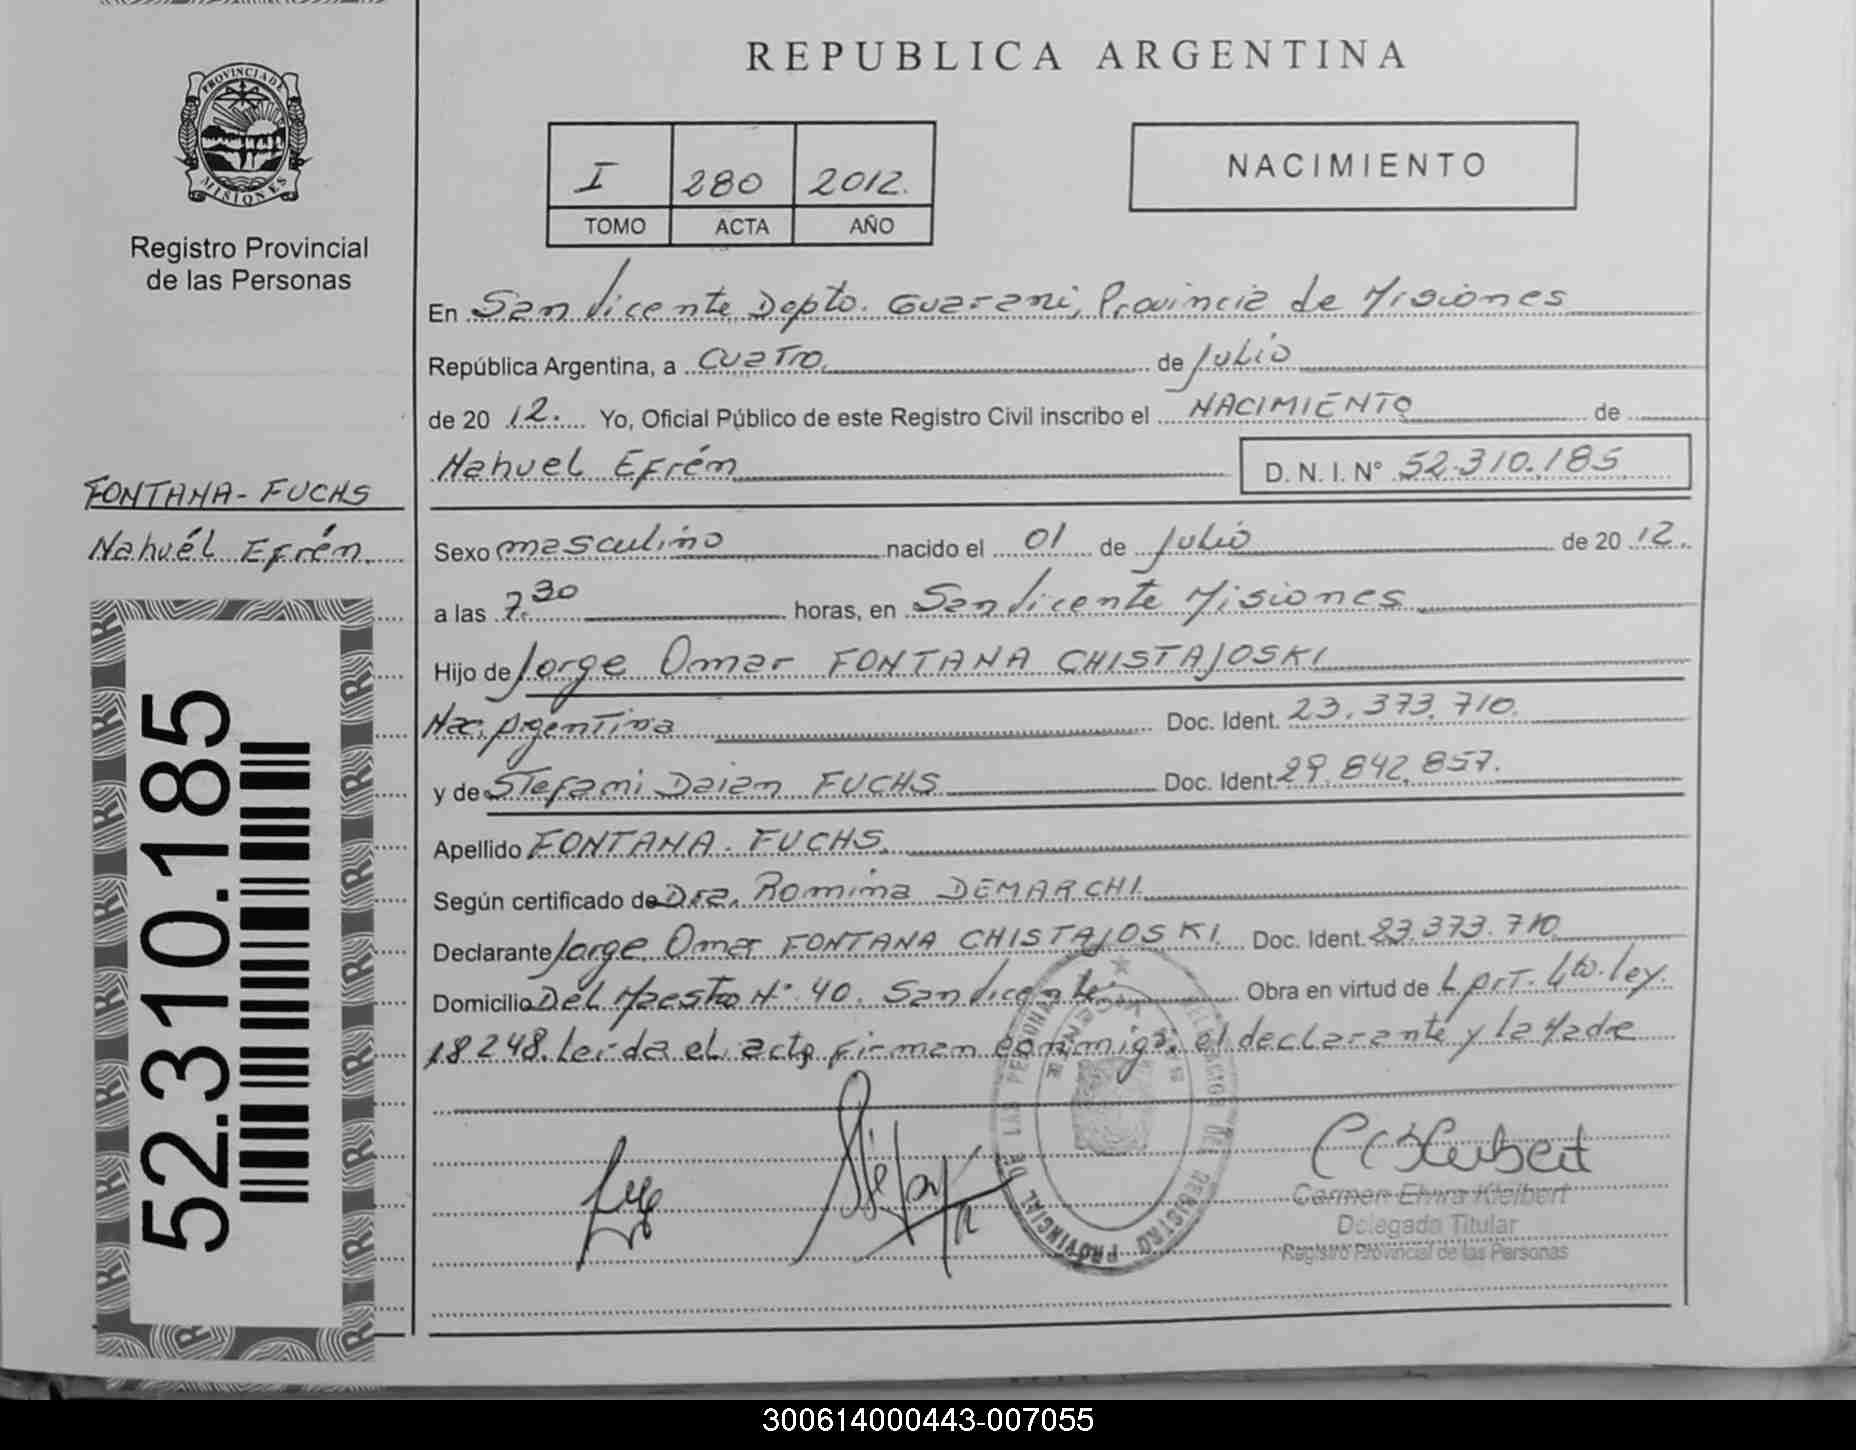 REPUBLICA ARGENTINA
PROVINCIA DE
MISIONES
Registro Provincial
de las Personas
I 280 2012.
TOMO ACTA AÑO
NACIMIENTO
En San Vicente Depto. Guarani, Provincia de Misiones
República Argentina, a cuatro. de Julio
de 20 12. Yo, Oficial Público de este Registro Civil inscribo el NACIMIENTO de
Nahuel Efrén D. N. I. N° 52.310.185
FONTANA - FUCHS
Nahuél Efrén.
Sexo masculino nacido el 01 de Julio de 20 12.
a las 7.30 horas, en San Vicente Misiones
Hijo de Jorge Omar FONTANA CHISTAJOSKI
Nac. Argentina Doc. Ident. 23.373.710.
y de Stefami Daian FUCHS Doc. Ident. 29.842.857.
Apellido FONTANA. FUCHS.
Según certificado de Dra. Romina DEMARCHI.
Declarante Jorge Omar FONTANA CHISTAJOSKI. Doc. Ident. 23.373.710
Domicilio Del Maestro N° 40. San Vicente. Obra en virtud de L Art. 4to. ley.
18248. Leida el acta firman conmigo; el declarante y la Madre
52.310.185
PROVINCIAL DE LAS PERSONAS
REGISTRO
Carmen Elvira Kleibert
Delegada Titular
Registro Provincial de las Personas
300614000443-007055